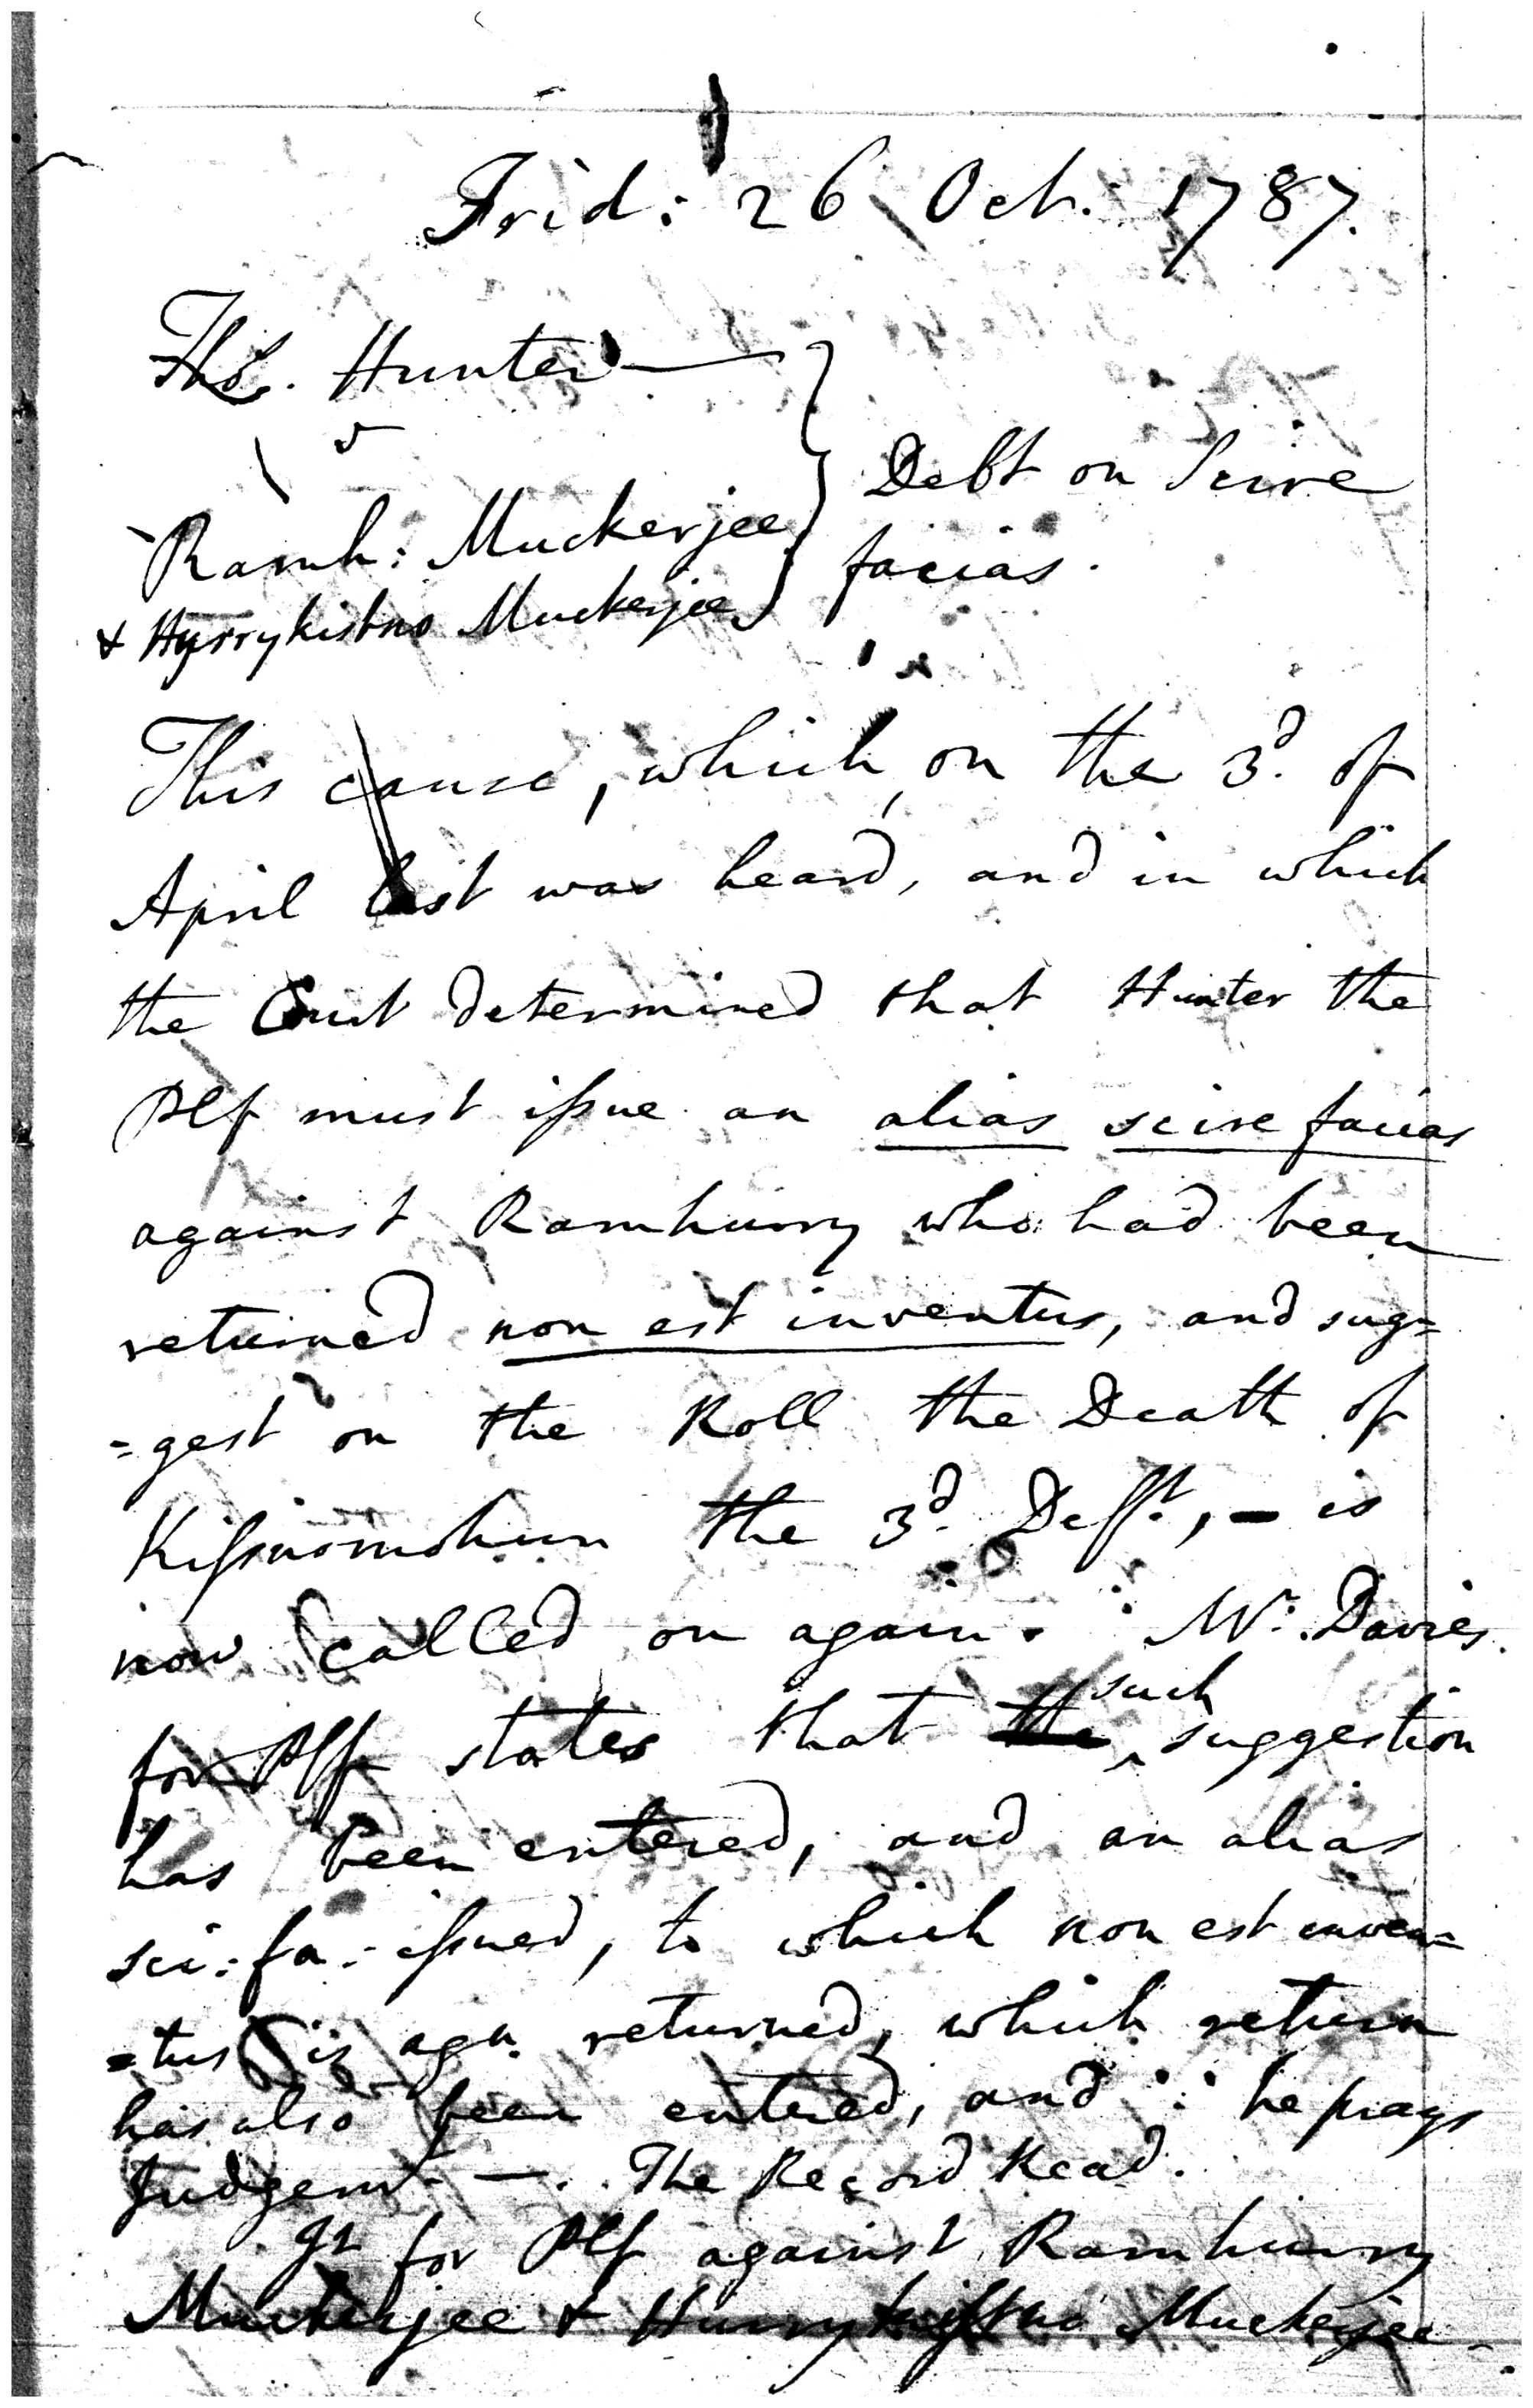 Frid: 26 Oct. 1787.
Thos. Hunter
v
Ramh: Muckerjee
& Hurrykistno Muckerjee
Debt on Scire
facias.
This cause, which, on the 3d. of
April last was heard, and in which
the Court determined that Hunter the
Plf must issue an alias scire facias
against Ramhurry who had been
returned non est inventus, and sug=
=gest on the Roll the Death of
Kissnomohun the 3d. Defft., – is
now called on again. Mr. Davies
for Plf states that the such suggestion
has been entered, and an alias
sci: fa: issued, to which non est inven=
=tus is agn. returned, which return
has also been entered, and ∴ he prays
Judgemt. —. The Record Read.
Jt for Plf against Ramhurry
Muckerjee & Hurrykissno Muckerjee.